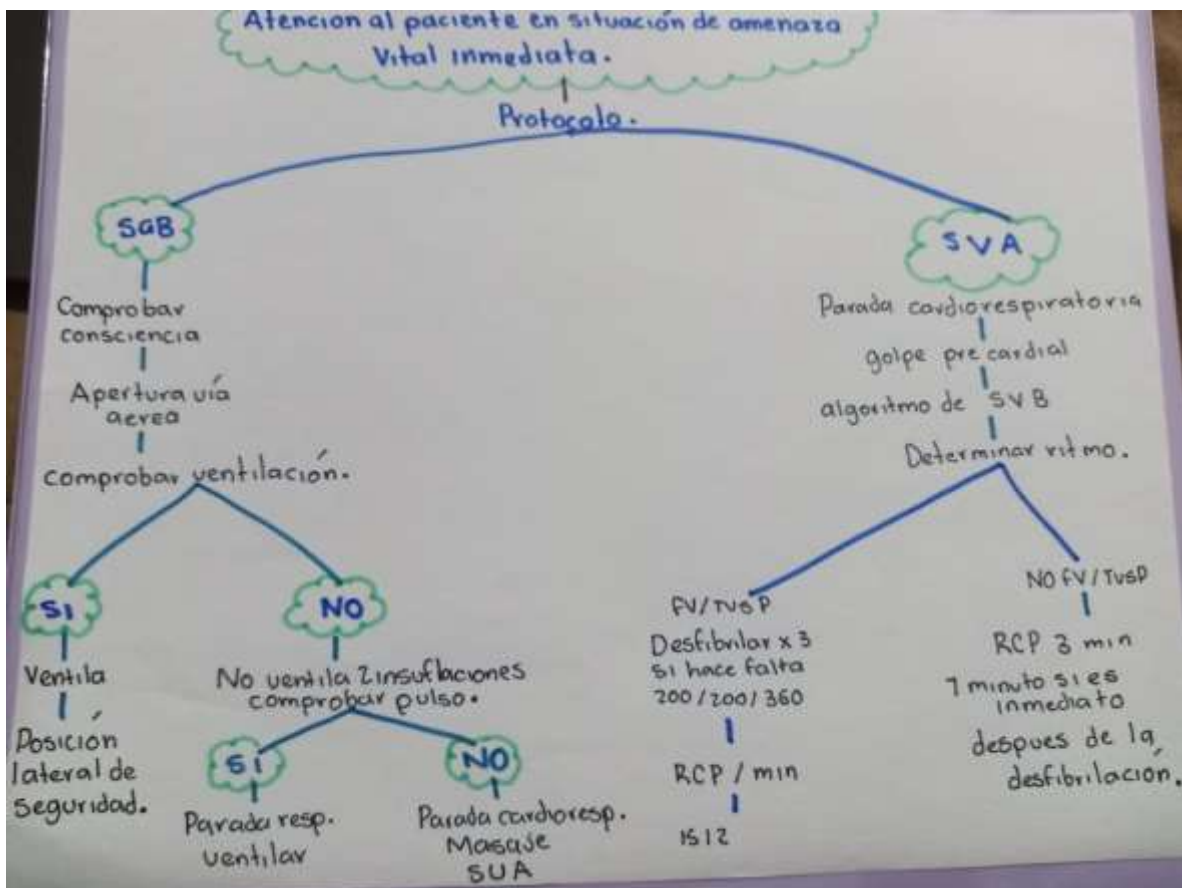 Atencion al paciente en situación de amenaza
Vital inmediata.
Protocolo.
SGB
Comprobar
consciencia
Apertura vía
aerea
comprobar ventilación.
SI
Ventila
Posición
lateral de
seguridad.
NO
No ventila 2 insuflaciones
comprobar pulso.
SI
Parada resp.
ventilar
NO
Parada cardioresp.
Masaje
SUA
SVA
Parada cardiorespiratoria
golpe pre cardial
algoritmo de SVB
Determinar ritmo.
FV/TVSP
Desfibrilar x 3
si hace falta
200/200/360
RCP / min
NO FV/TVSP
RCP 3 min
1 minuto si es
inmediato
despues de la
desfibrilación.